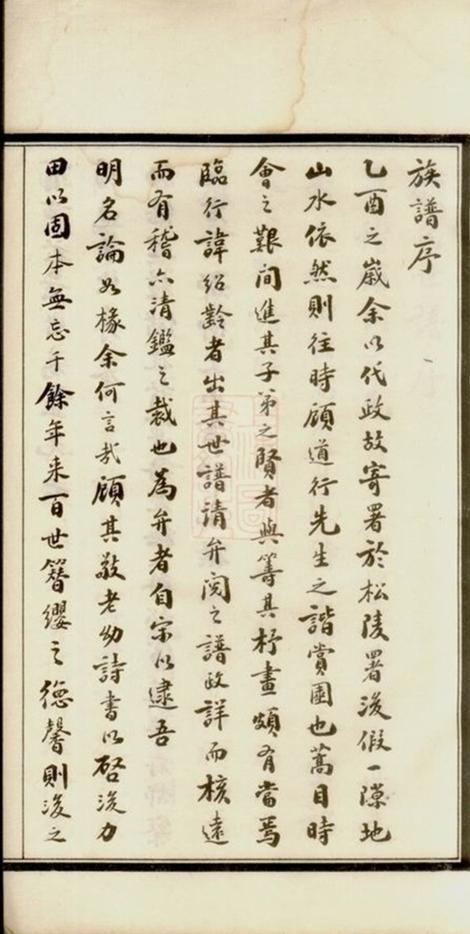 族譜序
乙酉之嵗余以代政故寄署於松陵署後假一隙地
山水依然則往時顧道行先生之諧賞園也蒿目時
會之艱間進其子弟之賢者與籌其杼畫頗有當焉
臨行諱紹齡者出其世譜請弁閱之譜政詳而核遠
而有稽亦清鑑之裁也為弁者自宗以逮吾
明名論如椽余何言哉顧其敬老幼詩書以啓後力
田以固本無忘千餘年来百世簪纓之德馨則後之